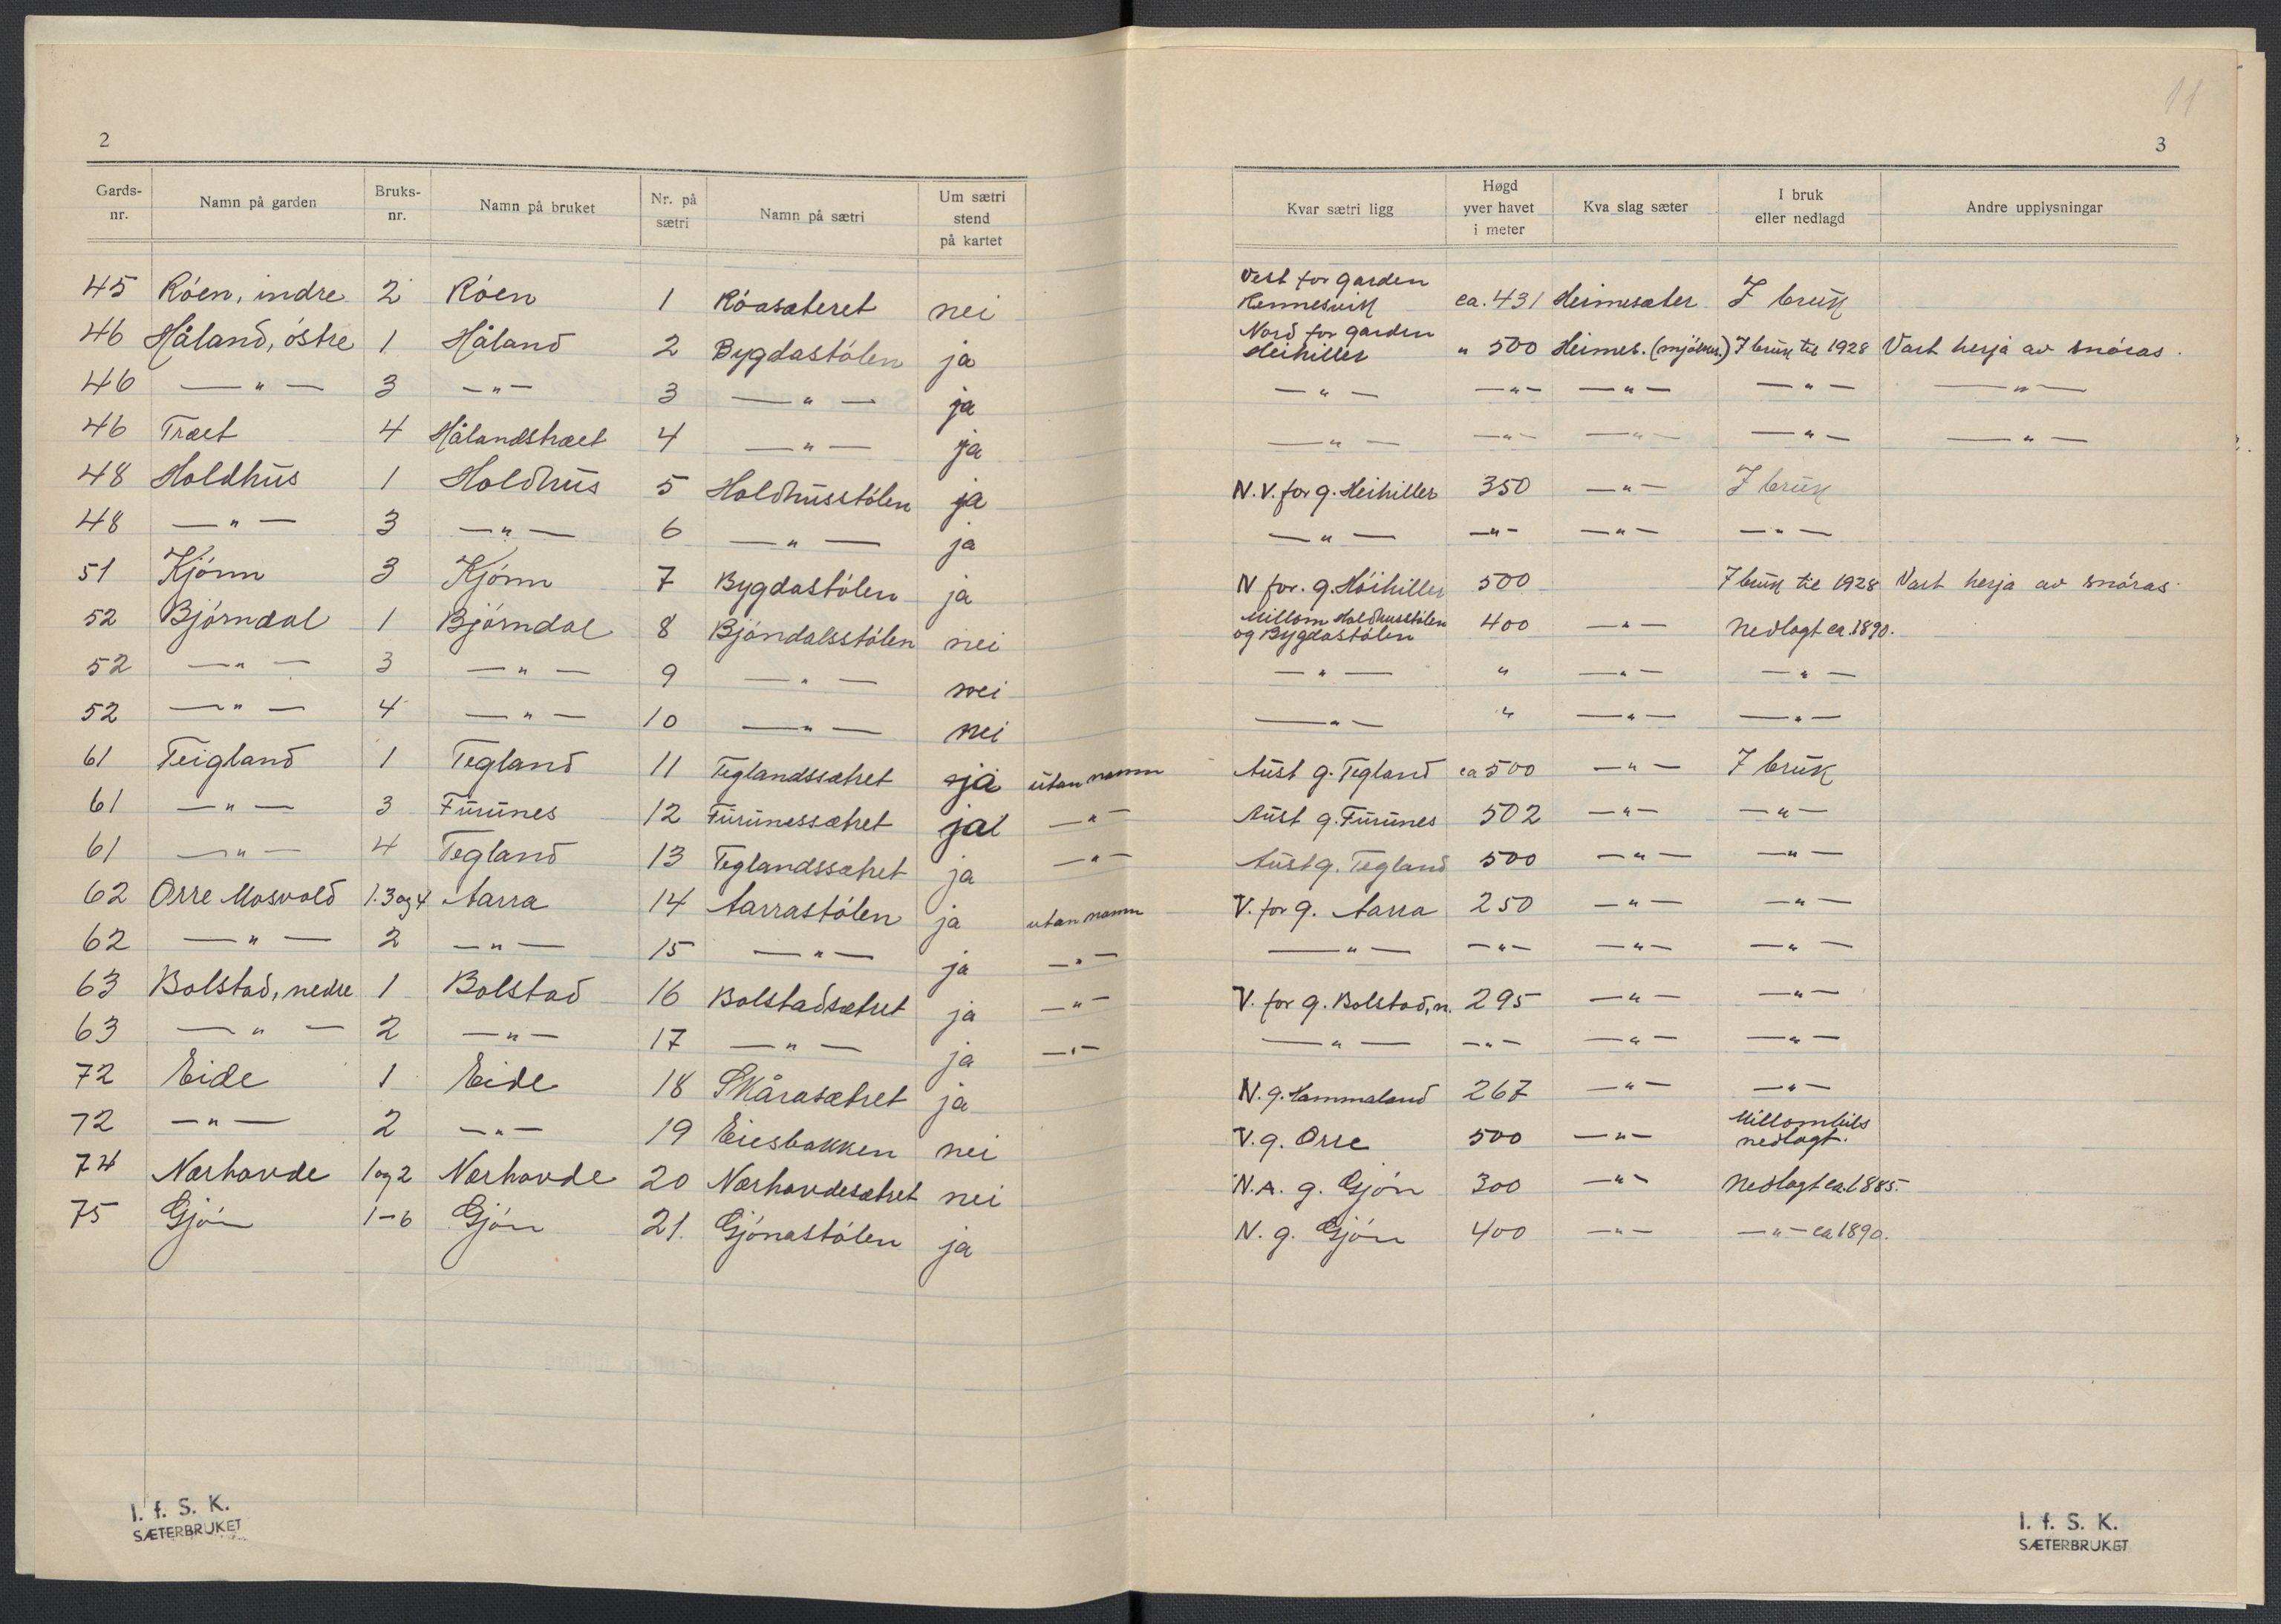 11
2
3
Gards-nr. Namn på garden Bruks-nr. Namn på bruket Nr. på sætri Namn på sætri Um sætri stend på kartet
Kvar sætri ligg Høgd yver havet i meter Kva slag sæter I bruk eller nedlagd Andre upplysningar
45 Róen, indre 2 Róen 1 Róasæteret nei Vest for garden Kennesvik ca. 431 Heimesæter I bruk
46 Håland, óstre 1 Håland 2 Bygdastólen ja Nord for garden Heihiller " 500 Heimes. (mjólkes.) I bruk til 1928 Vart herja av snóras.
46 — " — 3 — " — 3 — " — ja — " — — " — — " — — " — — " —
46 Træet 4 Hålandstræet 4 — " — ja — " — — " — — " — — " — — " —
48 Holdhus 1 Holdhus 5 Holdhusstólen ja N.V. for g. Heihiller 350 — " — I bruk
48 — " — 3 — " — 6 — " — ja — " — — " — — " — — " —
51 Kjónn 3 Kjónn 7 Bygdastólen ja N for. g. Hóihiller 500 I bruk til 1928 Vart herja av snóras.
52 Bjórndal 1 Bjórndal 8 Bjóndalsstólen nei Millom Holdhusstólen og Bygdastólen 400 — " — Nedlagt ca. 1890.
52 — " — 3 — " — 9 — " — nei — " — " — " — — " —
52 — " — 4 — " — 10 — " — nei — " — " — " — — " —
61 Teigland 1 Tegland 11 Teglandssætret ja utan namn Aust g. Tegland ca 500 — " — I bruk
61 — " — 3 Furunes 12 Furunessætret ja — " — Aust g. Furunes 502 — " — — " —
61 — " — 4 Tegland 13 Teglandssætret ja — " — Aust g. Tegland 500 — " — — " —
62 Orre Mosvold 1.3 og 4 Aarra 14 Aarrastólen ja utan namn V. for g. Aarra 250 — " — — " —
62 — " — 2 — " — 15 — " — ja — " — — " — — " — — " — — " —
63 Bolstad, nedre 1 Bolstad 16 Bolstadsætret ja — " — V. for g. Bolstad, n. 295 — " — — " —
63 — " — 2 — " — 17 — " — ja — " — — " — — " — — " — — " —
72 Eide 1 Eide 18 Skårasætret ja N. g. Hammaland 267 — " — — " —
72 — " — 2 — " — 19 Eiesbakken nei V. g. Orre 500 — " — nedlagt.
74 Nærhovde 1 og 2 Nærhovde 20 Nærhovdesætret nei N.A. g. Gjón 300 — " — Nedlagt ca. 1885.
75 Gjón 1-6 Gjón 21. Gjónastólen ja N. g. Gjón 400 — " — — " — ca 1890.
I. f. S. K.
SÆTERBRUKET
I. f. S. K.
SÆTERBRUKET